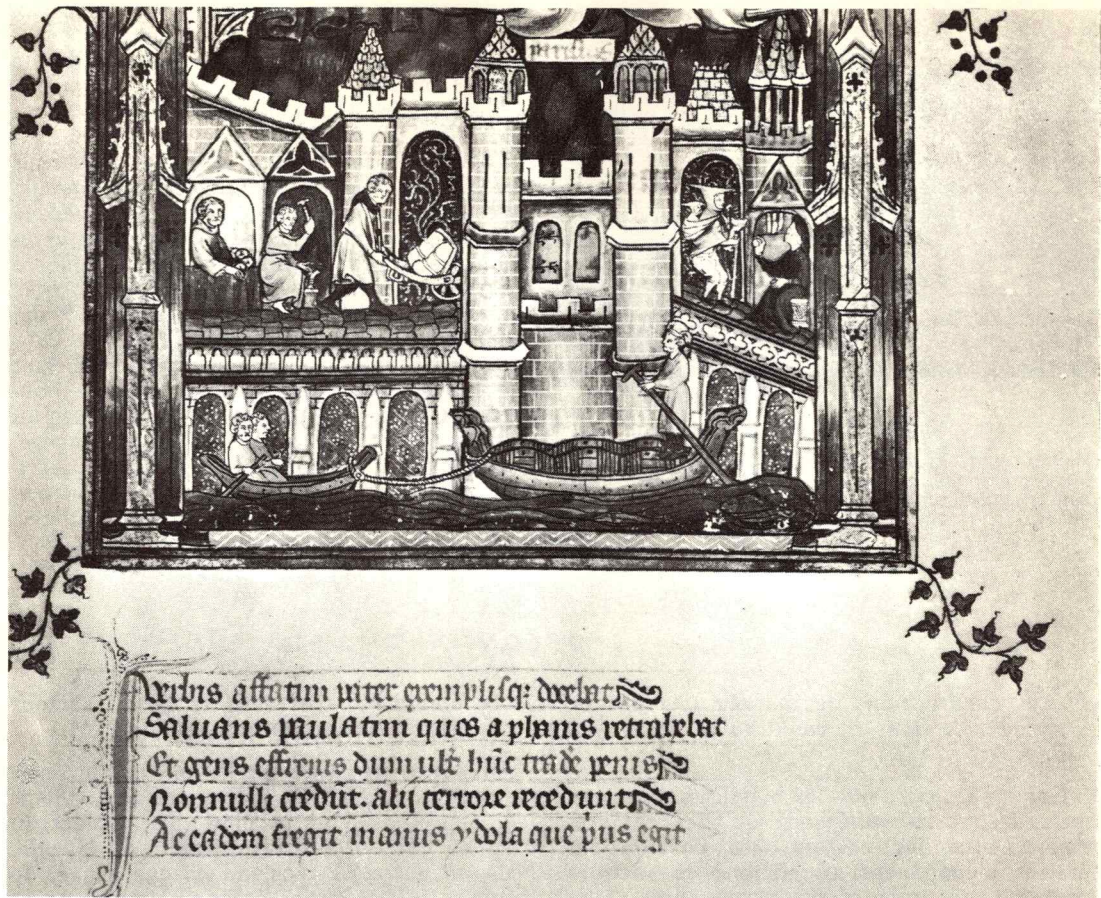 Verbis affatim pater exemplisq; docebat
Saluans paulatim quos a phanis retrahebat
Et gens effrenis dum ult hūc tradē penis
Nonnulli credūt. alij terrore recedunt
Ac eadem fregit manus ydola que pus egit